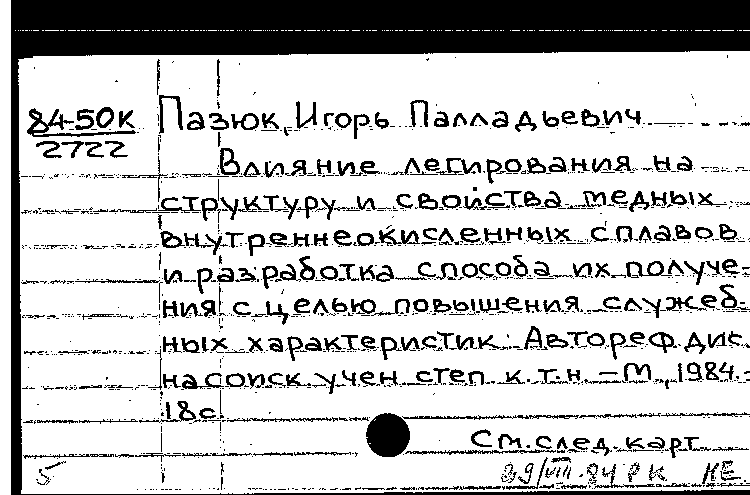 84-50К
2722
Пазюк, Игорь Палладьевич
Влияние легирования на
структуру и свойства медных
внутреннеокисленных сплавов
и разработка способа их получе-
ния с целью повышения служеб-
ных характеристик. Автореф. дис.
на соиск. учен. степ. к.т.н. – М., 1984.-
18с.
См. след. карт.
5
/VIII-84 РК НЕ